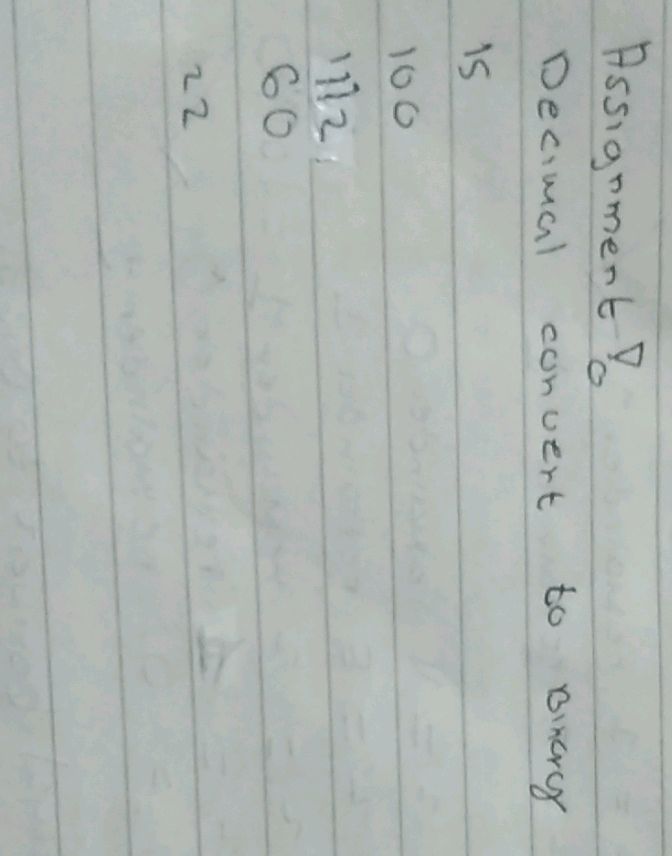 Assignment!
Decimal convert to Binary
15
100
1112
60
22